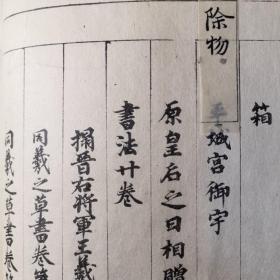 箱
除物
平城宮御宇
原皇后之日相贈
書法廿卷
搨晉右将軍王羲
同羲之草書卷第
同羲之草書卷